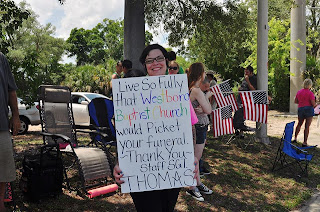 Live So Fully
that Westboro
Baptist Church
would Picket
your funeral.
Thank You
Staff Sgt
THOMAS